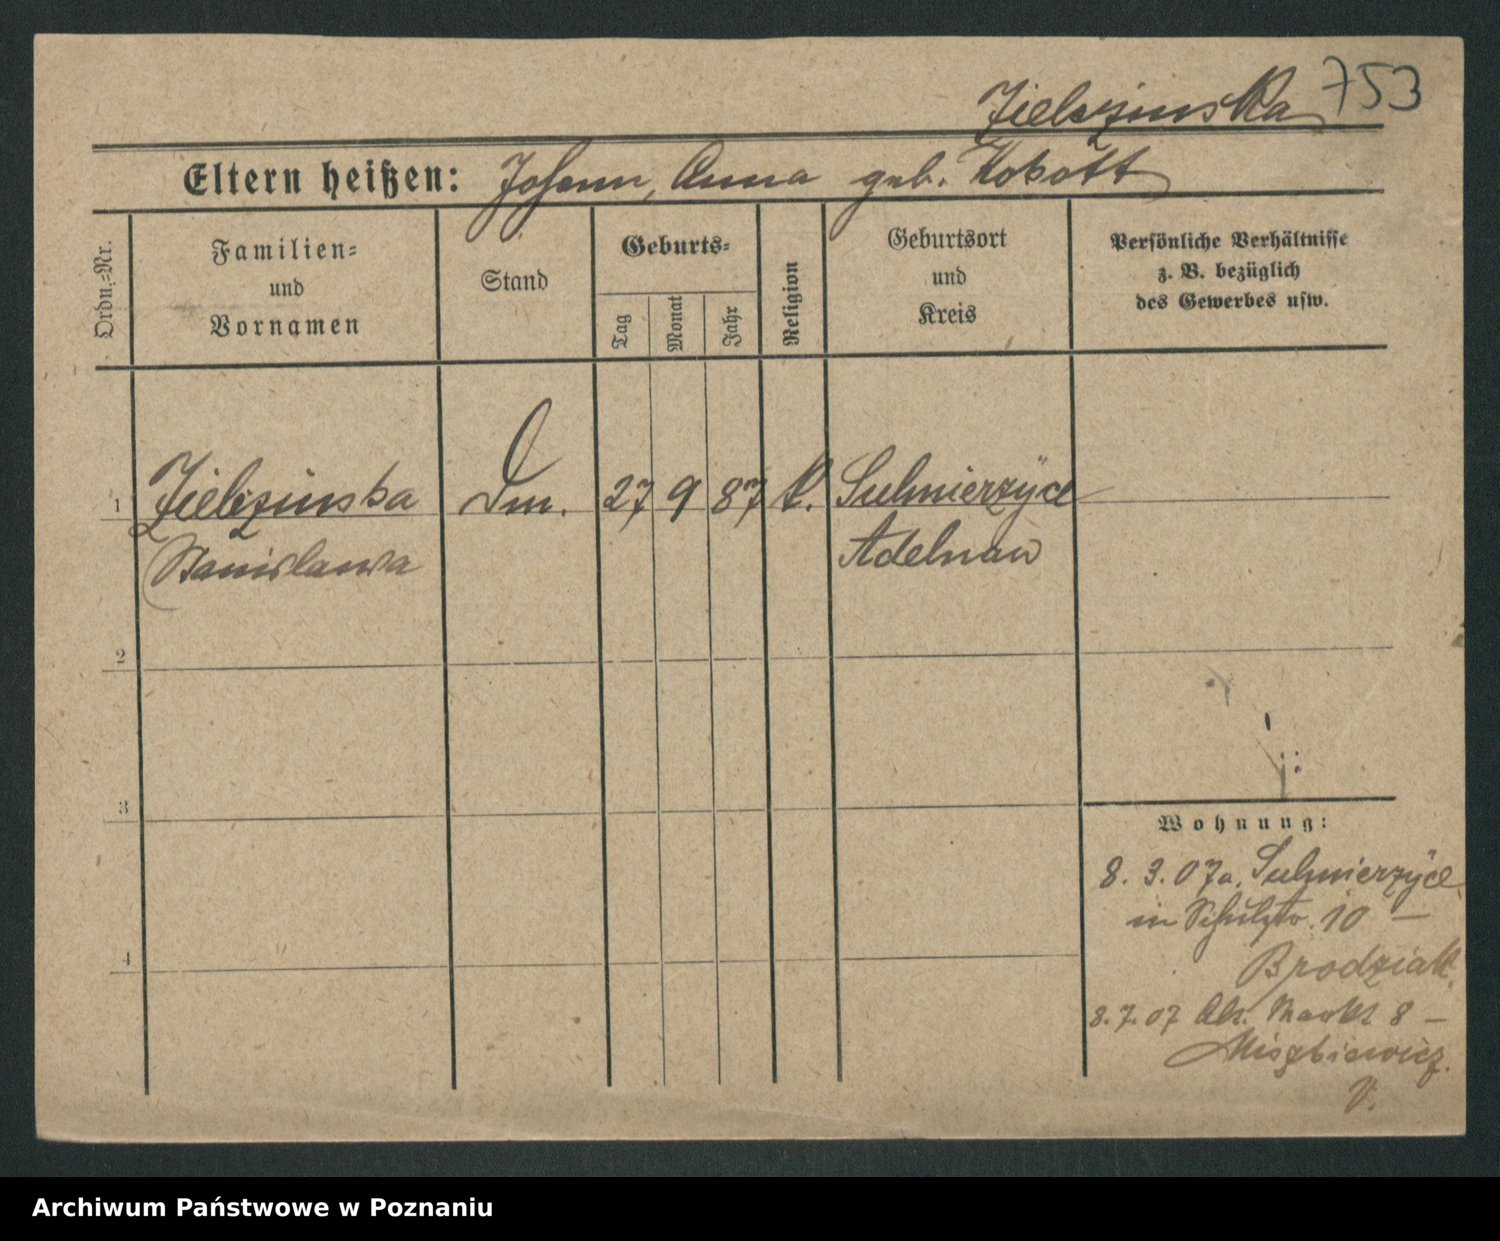 Zielezinska 753
Eltern heißen: Johann, Anna geb. Kobott
Ordn.-Nr.
Familien-
und
Vornamen
Stand
Geburts-
Tag
Monat
Jahr
Religion
Geburtsort
und
Kreis
Persönliche Verhältnisse
z. B. bezüglich
des Gewerbes usw.
1 Zielezinska Dm. 27 9 87 k. Sulmierzÿce
Stanislawa Adelnau
2
3
4
Wohnung:
8. 3. 07 a. Sulmierzÿce
in Schulstr. 10 —
Brodziak
8. 7. 07 Alt. Markt 8 —
V.